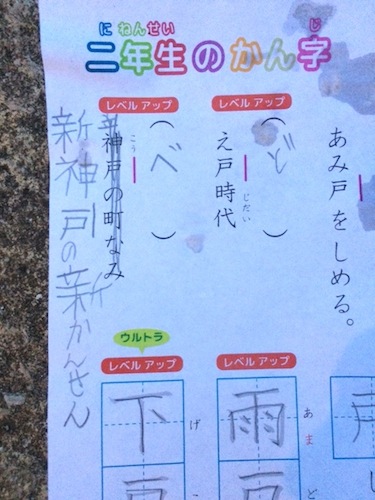 に ねん せい じ
二年生のかん字
あみ戸をしめる。
レベルアップ
(ど)
え戸時代
じだい
レベルアップ
(べ)
こう
神戸の町なみ
新神戸の新かんせん
レベルアップ
雨
あま
ウルトラ
レベルアップ
下
げ